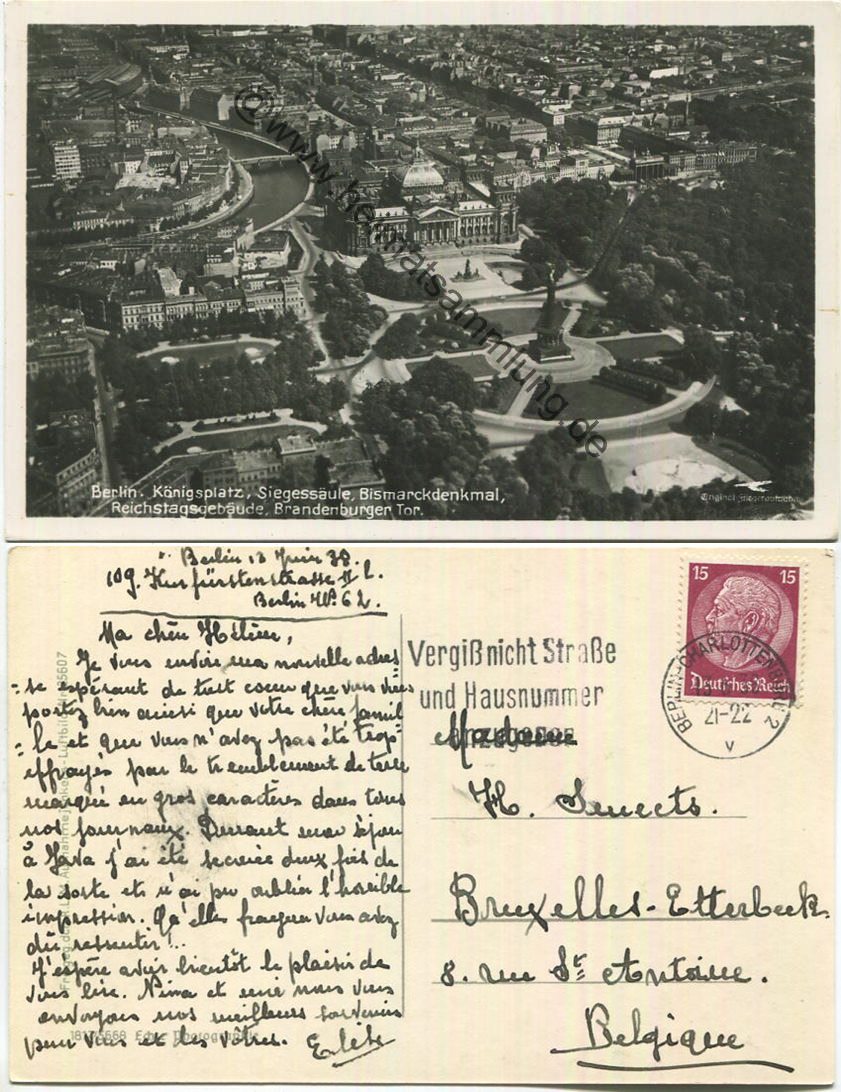 @www.heimatsammlung.de
Berlin. Königsplatz, Siegessäule, Bismarckdenkmal,
Reichstagsgebäude, Brandenburger Tor.
Original-Fliegeraufnahme
Berlin 13 Juin 38.
109. Kurfürstenstrasse II
Berlin W. 62.
Ma chère Hélène,
Je vous envoie ma nouvelle adres-
=se espérant de tout cœur que vous vous
portez bien ainsi que votre chère famil
=le et que vous n'avez pas été trop
effrayés par le tremblement de terre
marqué en gros caractères dans tous
nos journaux. Durant mon séjour
à Java j'ai été secouée deux fois de
la sorte et n'ai pu oublier l'horrible
impression. Qu'elle frayeur vous avez
dû ressentir!..
J'espère avoir bientôt le plaisir de
vous lire. Nina et moi nous vous
envoyons nos meilleurs souvenirs
pour vous et les vôtres.
Vergiß nicht Straße
und Hausnummer
anzugeben
15 15
Deutsches Reich
BERLIN-CHARLOTTENBURG 2
21-22
v
Madame
H. Smeets.
Bruxelles-Etterbeek.
8. rue St Antoine.
Belgique